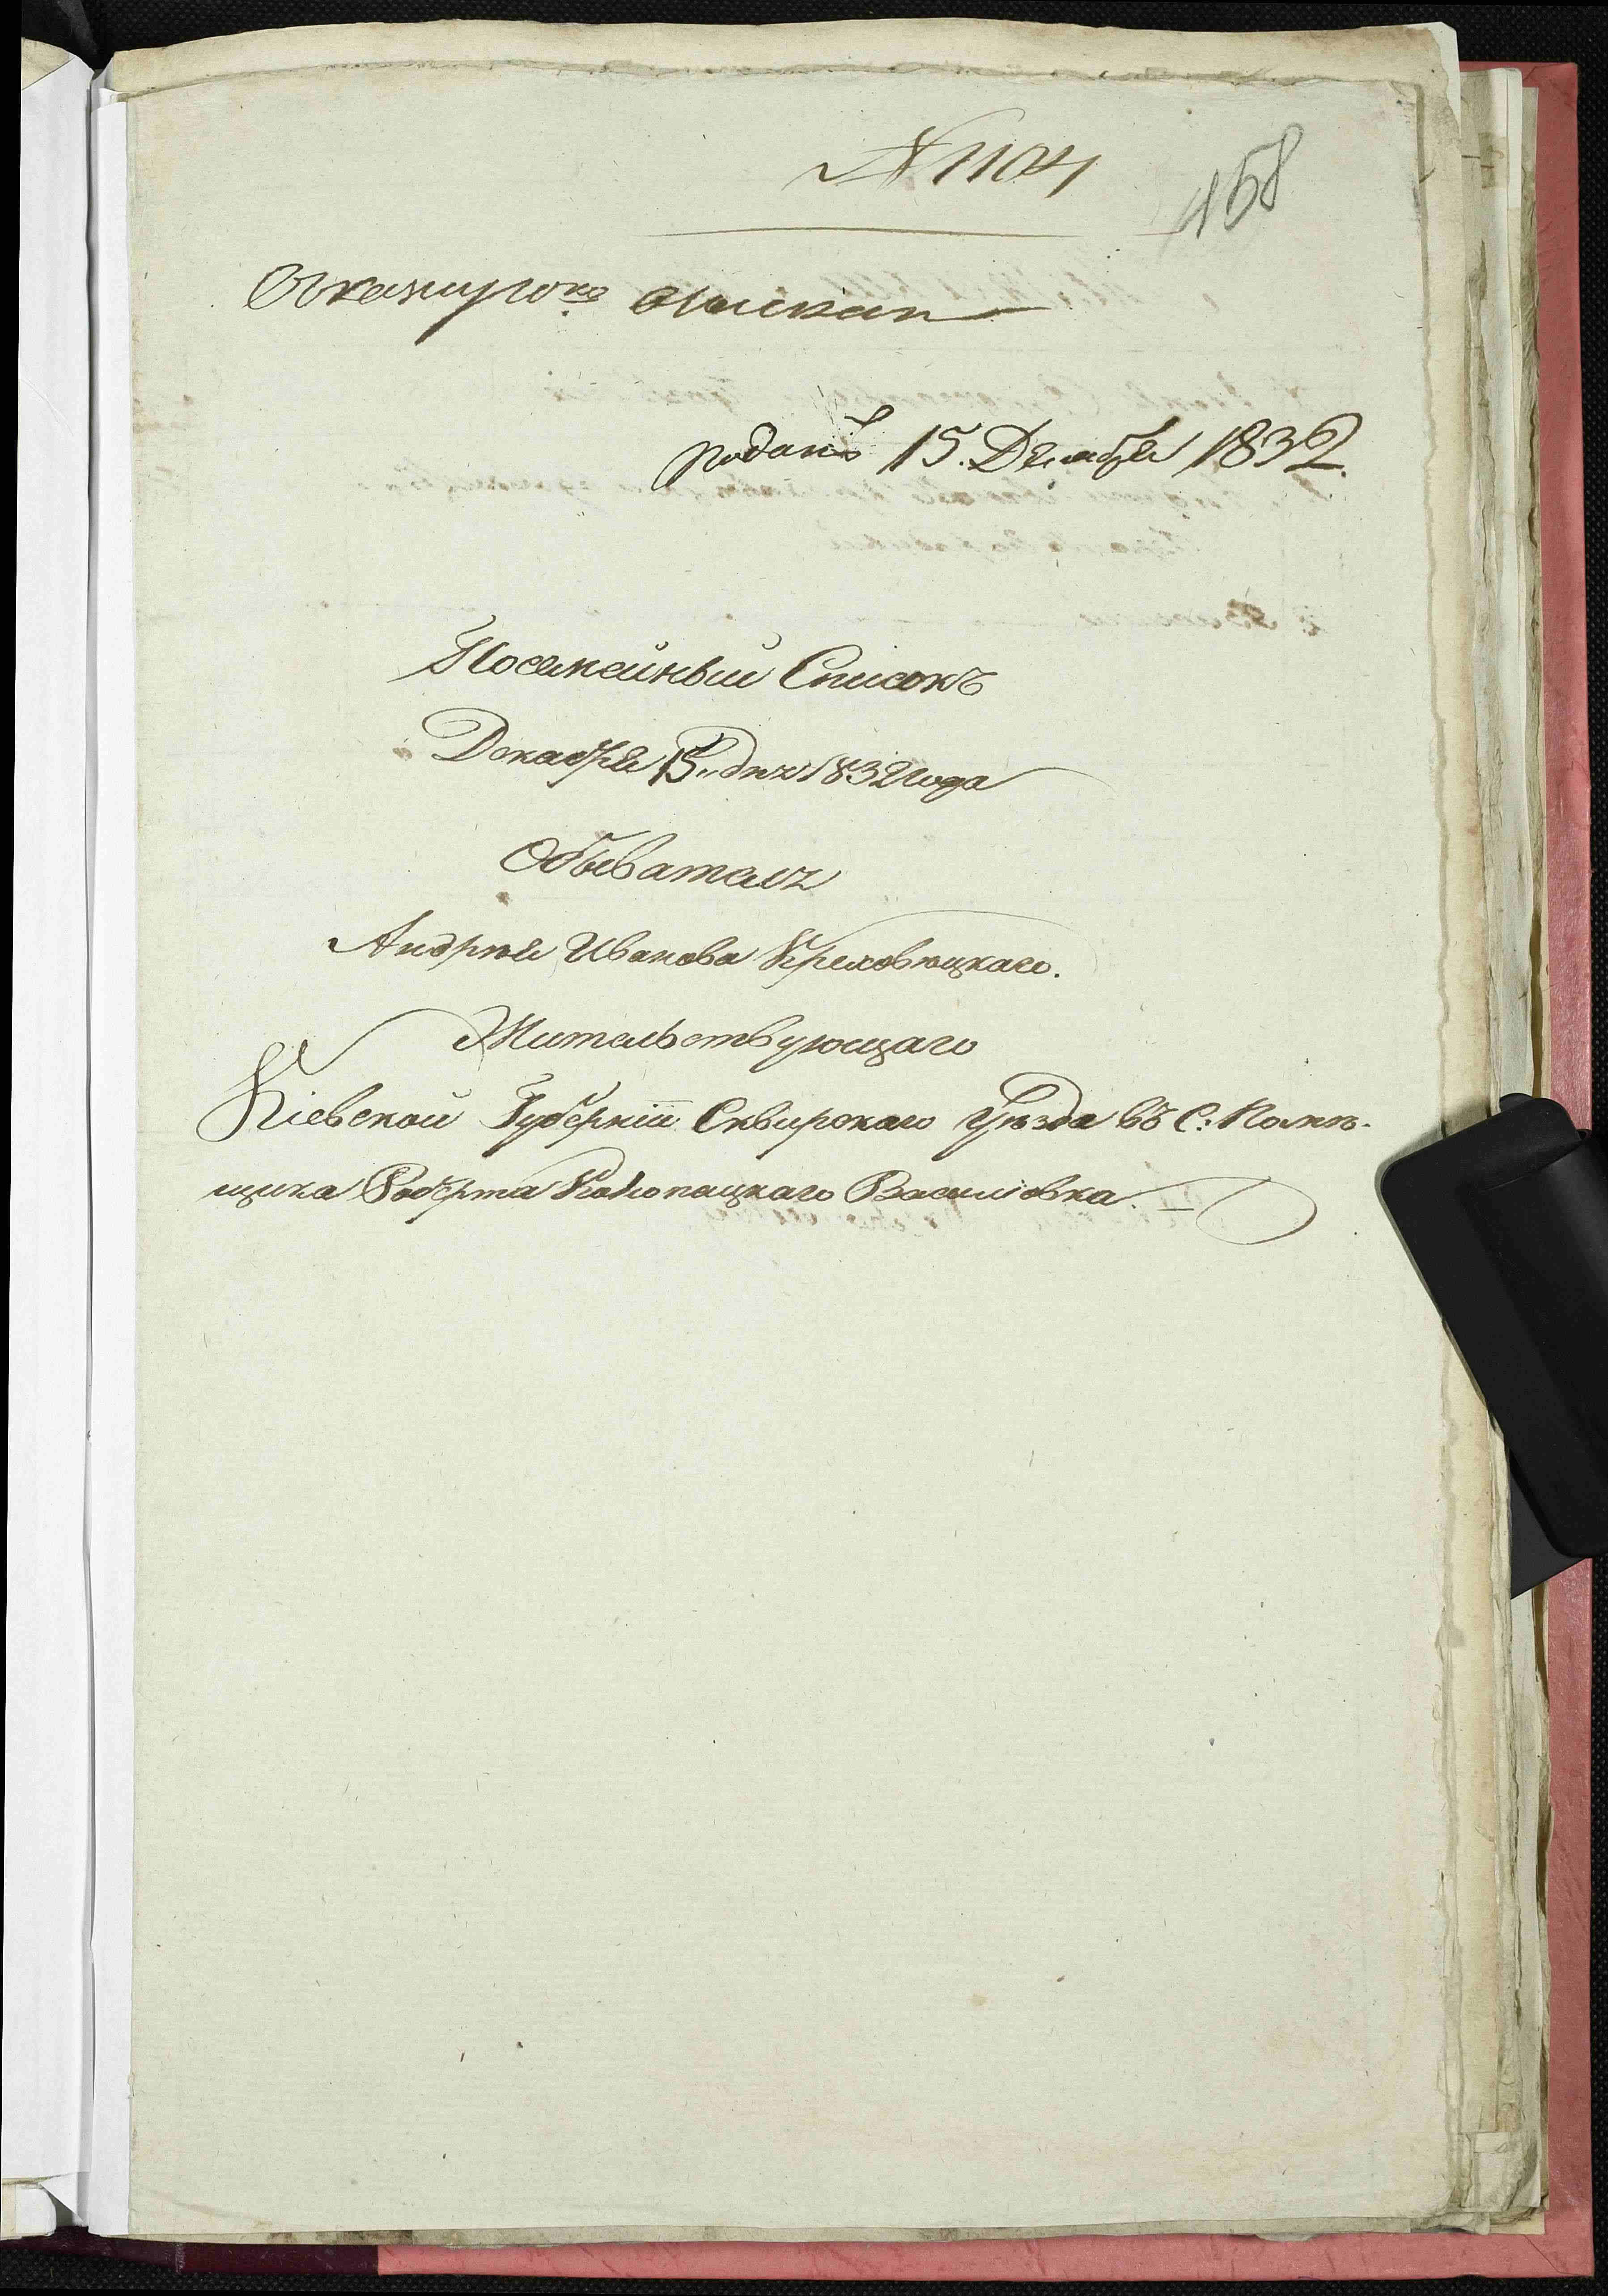 № 1104
458
поданъ 15. Декабря 1832.
Посемейный Списокъ
Декабря 15„ дня 1832 года
Обывателя
Андрѣя Иванова Креховѣцкаго.
Жительствующаго
Кіевской Губерніи Сквирскаго Уѣзда въ С: Помѣ-
щика Роберта Василіовка.